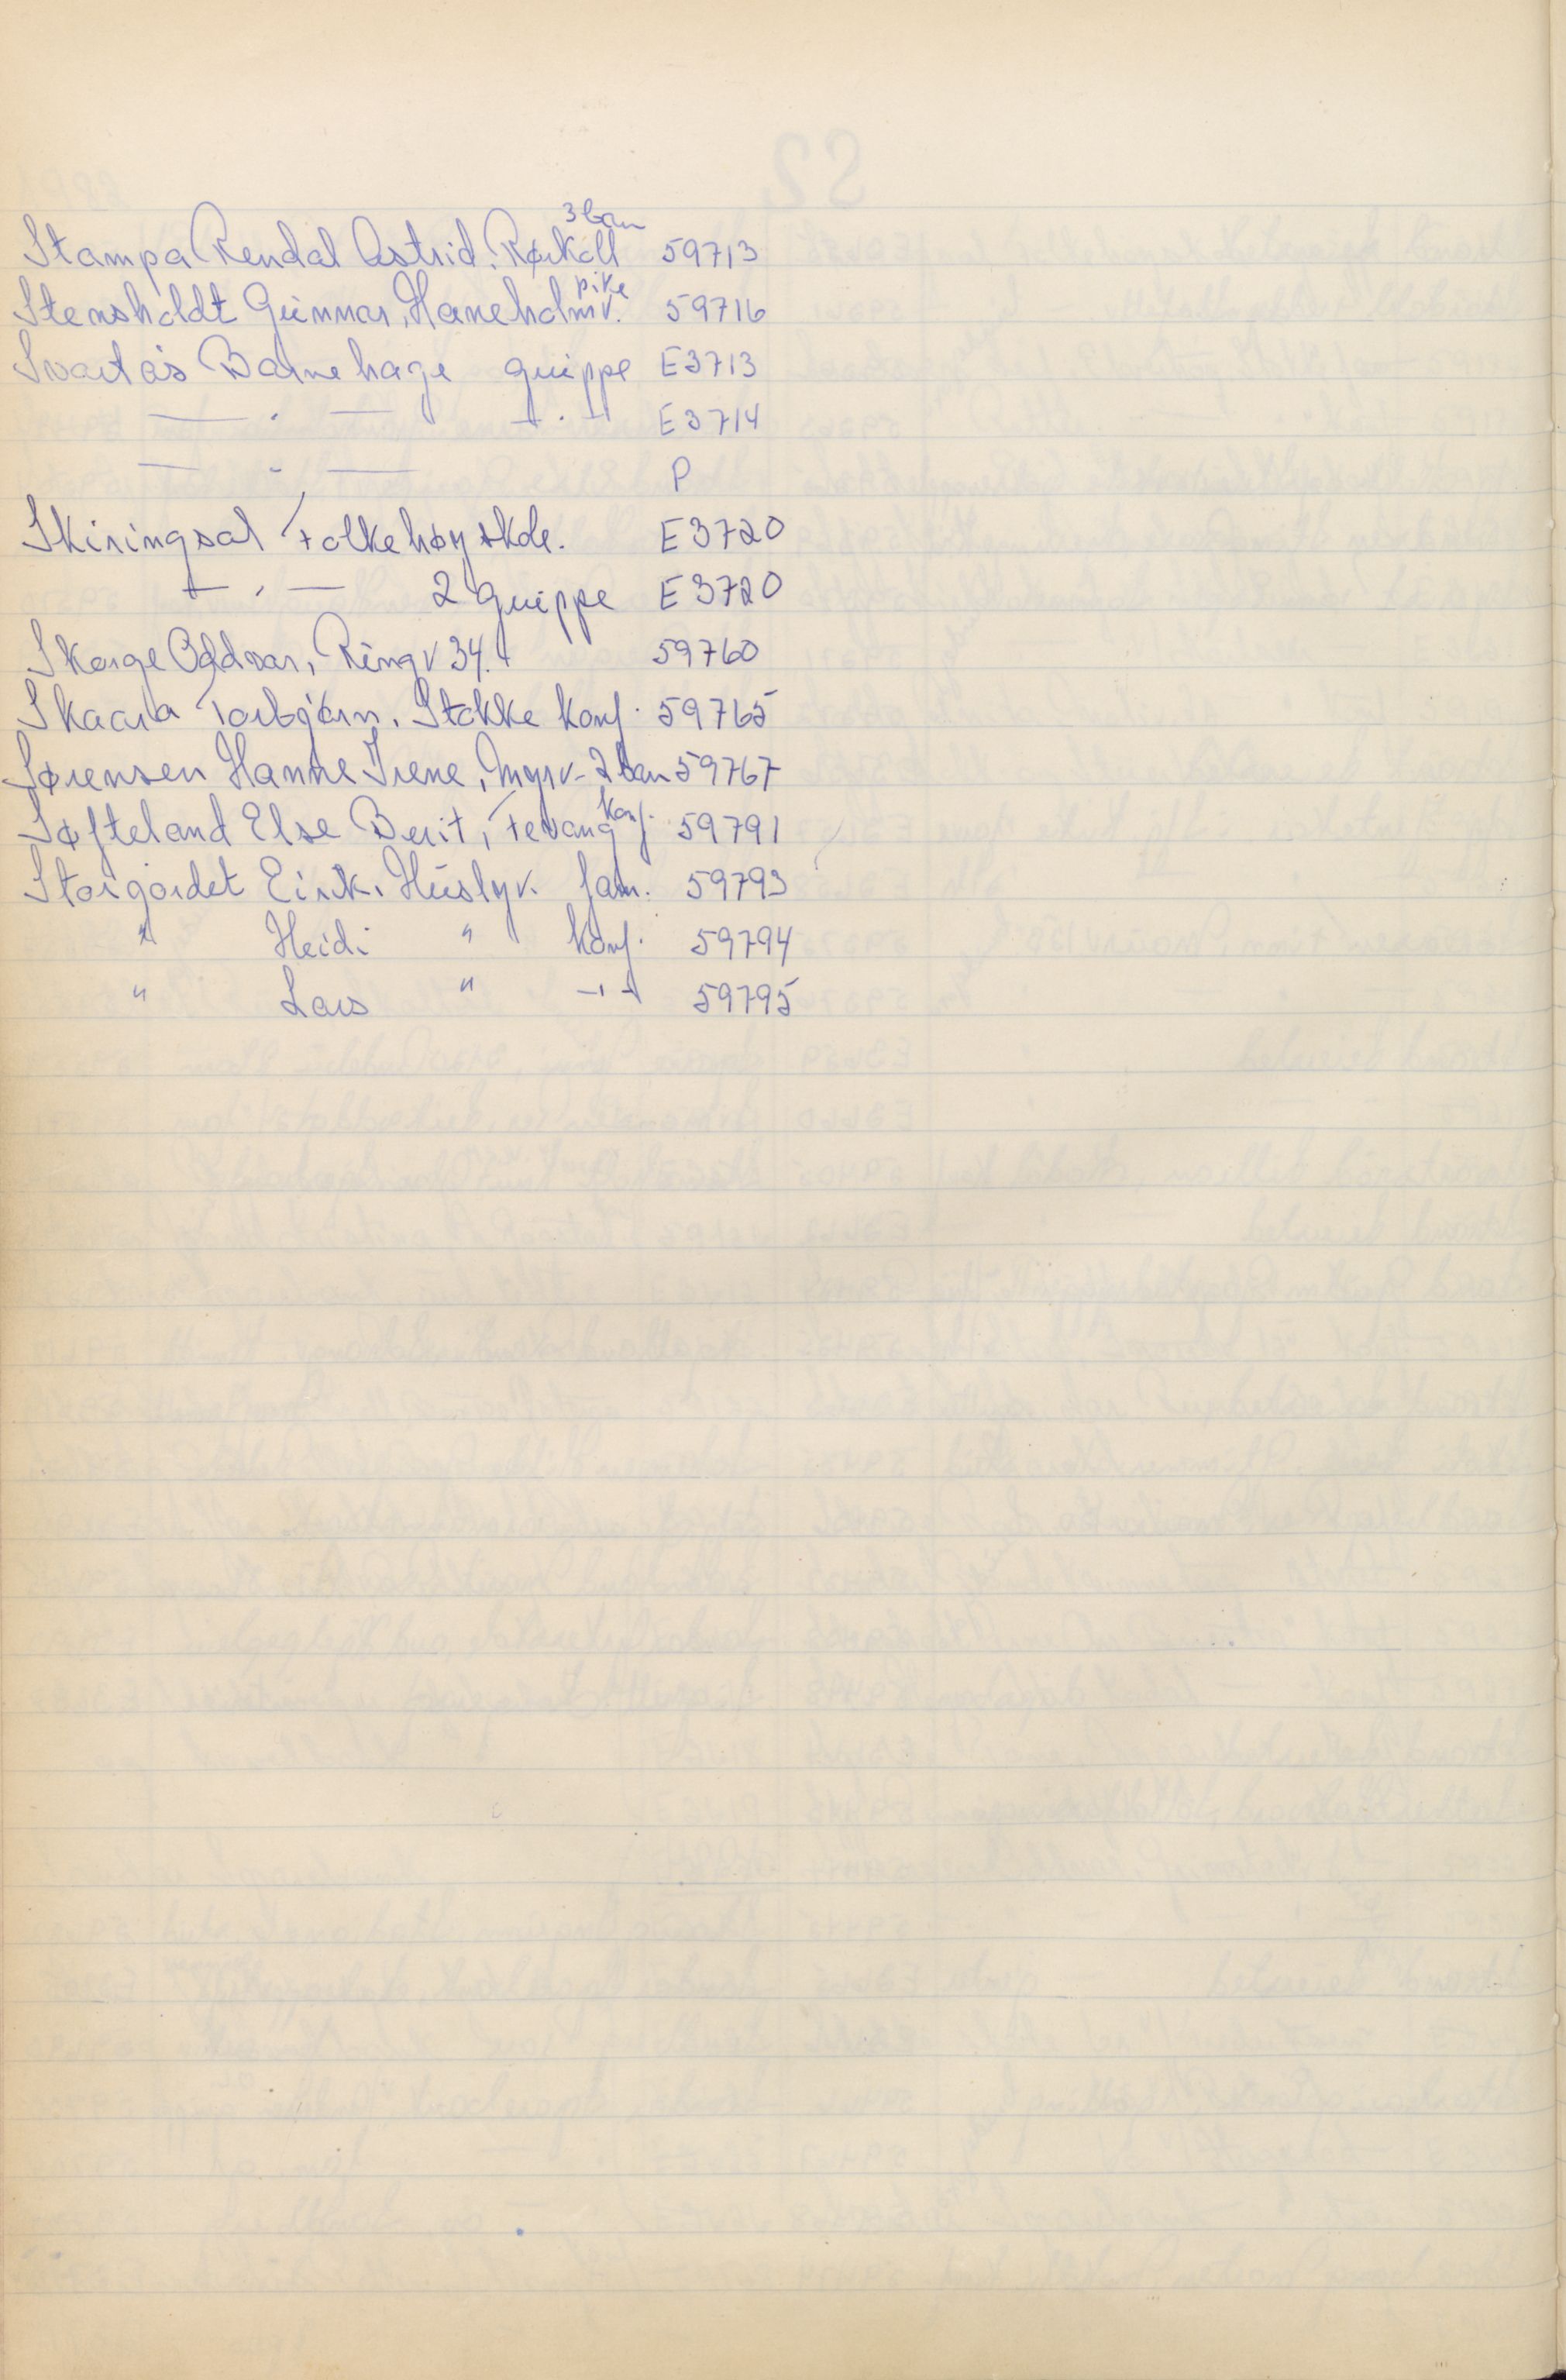 Stampa Rendal Astrid. Rørkoll 3 barn 59713
Stensholdt Gunnar, Haneholmv. pike 59716
Svartås Barnehage gruppe E3713
— " — — " — E3714
— " — P
Skiringsal Folkehøyskole. E3720
— " — 2 gruppe E3720
Skorge Oddvar, Ringv 34. 59760
Skaara Torbjørn, Stokke konf. 59765
Sørensen Hanne Irene, Myrv- 2 barn 59767
Søfteland Else Berit, Fevang konf. 59791
Storgordet Eirik. Huslyv. fam. 59793
" Heidi " konf. 59794
" Lars " — " — 59795